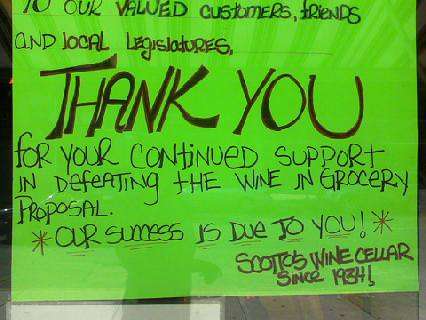 TO OUR VALUED CUSTOMERS, FRIENDS
AND LOCAL LEGISLATURES,
THANK YOU
FOR YOUR CONTINUED SUPPORT
IN DEFEATING THE WINE IN GROCERY
PROPOSAL.
* OUR SUCCESS IS DUE TO YOU! *
SCOTTO'S WINE CELLAR
SINCE 1934!